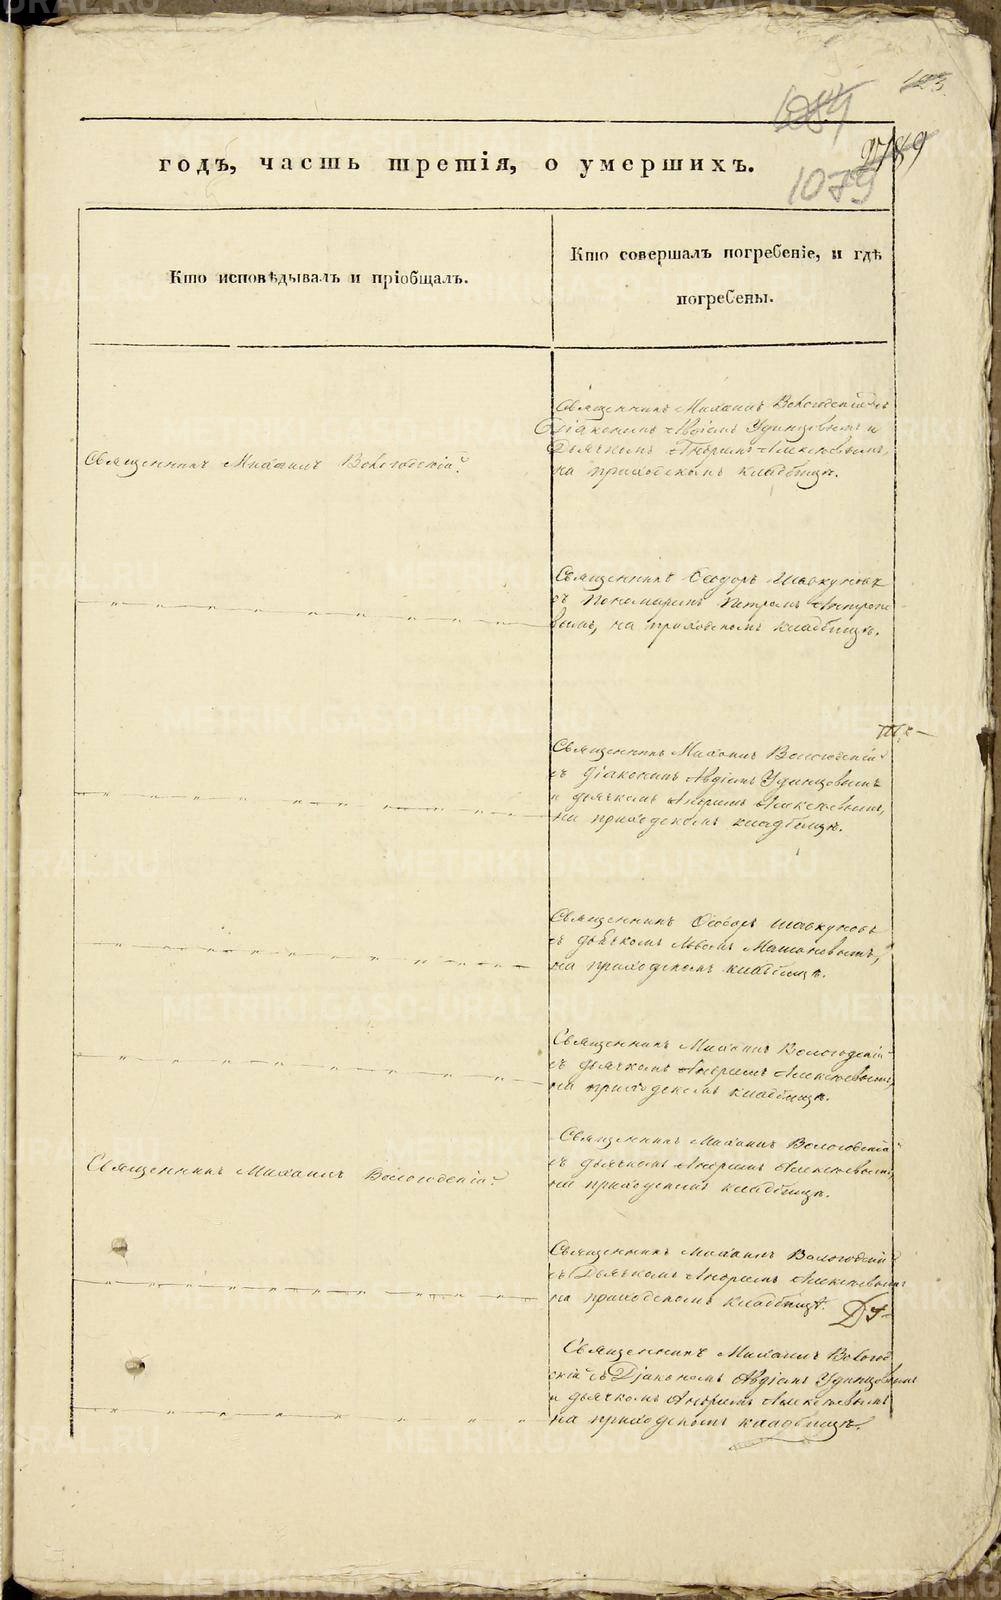 1084
103.
годъ, часть третія, о умершихъ.
2789
1079
Кто исповѣдывалъ и пріобщалъ.
Кто совершалъ погребеніе, и гдѣ
погребены.
Священникъ Михаилъ Вологодскій съ
Діакономъ Авдіемъ Удинцовымъ и
Дьячкомъ Андреемъ Алексѣевымъ,
Священникъ Михаилъ Вологодскій
на приходскомъ кладбищѣ.
Священникъ Ѳеодоръ Шавкуновъ
съ пономаремъ Петромъ
на приходскомъ кладбищѣ.
Священникъ Михаилъ Вологодскій
съ діакономъ Авдіемъ Удинцовымъ
и дьячкомъ Андреемъ Алексѣевымъ,
на приходскомъ кладбищѣ.
Священникъ Ѳеодоръ Шавкуновъ
съ дьячкомъ Львомъ
на приходскомъ кладбищѣ.
Священникъ Михаилъ Вологодскій
съ дьячкомъ Андреемъ Алексѣевымъ,
на приходскомъ кладбищѣ.
Священникъ Михаилъ Вологодскій
съ дьячкомъ Андреемъ Алексѣевымъ,
Священникъ Михаилъ Вологодскій
на приходскомъ кладбищѣ.
Священникъ Михаилъ Вологодскій
съ Дьячкомъ Андреемъ Алексѣевымъ
на приходскомъ кладбищѣ.
Священникъ Михаилъ Вологод
скій съ Діакономъ Авдіемъ Удинцовымъ
и дьячкомъ Андреемъ Алексѣевымъ
на приходскомъ кладбищѣ.
METRIKI.GASO-URAL.RU